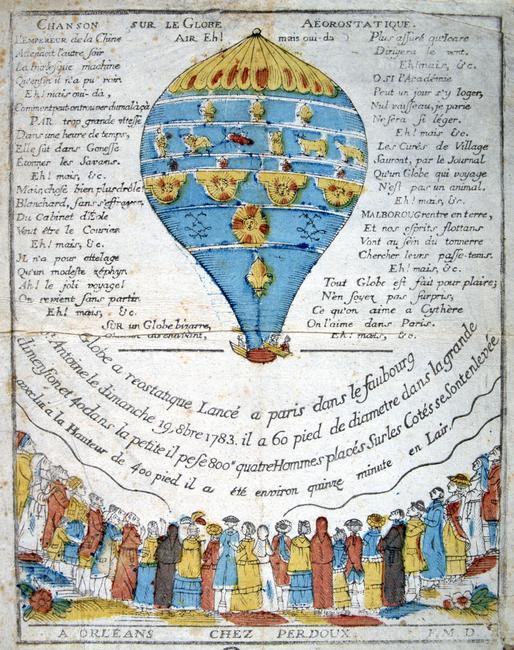 CHANSON SUR LE GLOBE AEOROSTATIQUE.
AIR Eh! mais oui-da
L'EMPEREUR de la Chine
Attendoit l'autre soir
La
machine
Qu'enfin il n'a pu voir.
Eh! mais oui-da,
Comment peut-on trouver du mal à ça
PAR trop grande vitesse
Dans une heure de temps,
Elle fut dans Gonesse
Etonner les Savans.
Eh! mais, &c.
Mais chose bien plus drôle!
Blanchard, sans s'effrayer,
Du Cabinet d'Eole
Veut être le Courier.
Eh! mais, &c.
IL n'a pour attelage
Qu'un modeste zéphyr.
Ah! le joli voyage!
On revient sans partir.
Eh! mais, &c.
SUR un Globe bizarre,
Plus assuré qu'Icare
Dirigera le vent.
Eh! mais, &c.
O SI l'Académie
Peut un jour s'y loger,
Nul vaisseau, je parie
Ne sera si léger.
Eh! mais, &c.
Les Curés de Village
Sauront, par le Journal
Qu'un Globe qui voyage
N'est pas un animal.
Eh! mais, &c.
MALBOROUG rentre en terre,
Et nos esprits flottans
Vont au sein du tonnerre
Chercher leurs passe-tems.
Eh! mais, &c.
Tout Globe est fait pour plaire;
N'en soyez pas surpris,
Ce qu'on aime à Cythère
On l'aime dans Paris.
Eh! mais, &c.
Globe a reostatique Lancé a paris dans le faubourg
St Antoine le dimanche 19, 8bre 1783. il a 60 pied de diametre dans la grande
dimansion et 40 dans la petite il pese 800" quatre Hommes placés Sur les Cotés se sont enlevée
a la Hauteur de 400 pied il a été environ quinze minute en Lair.
A ORLÉANS CHEZ PERDOUX. F. M. D.